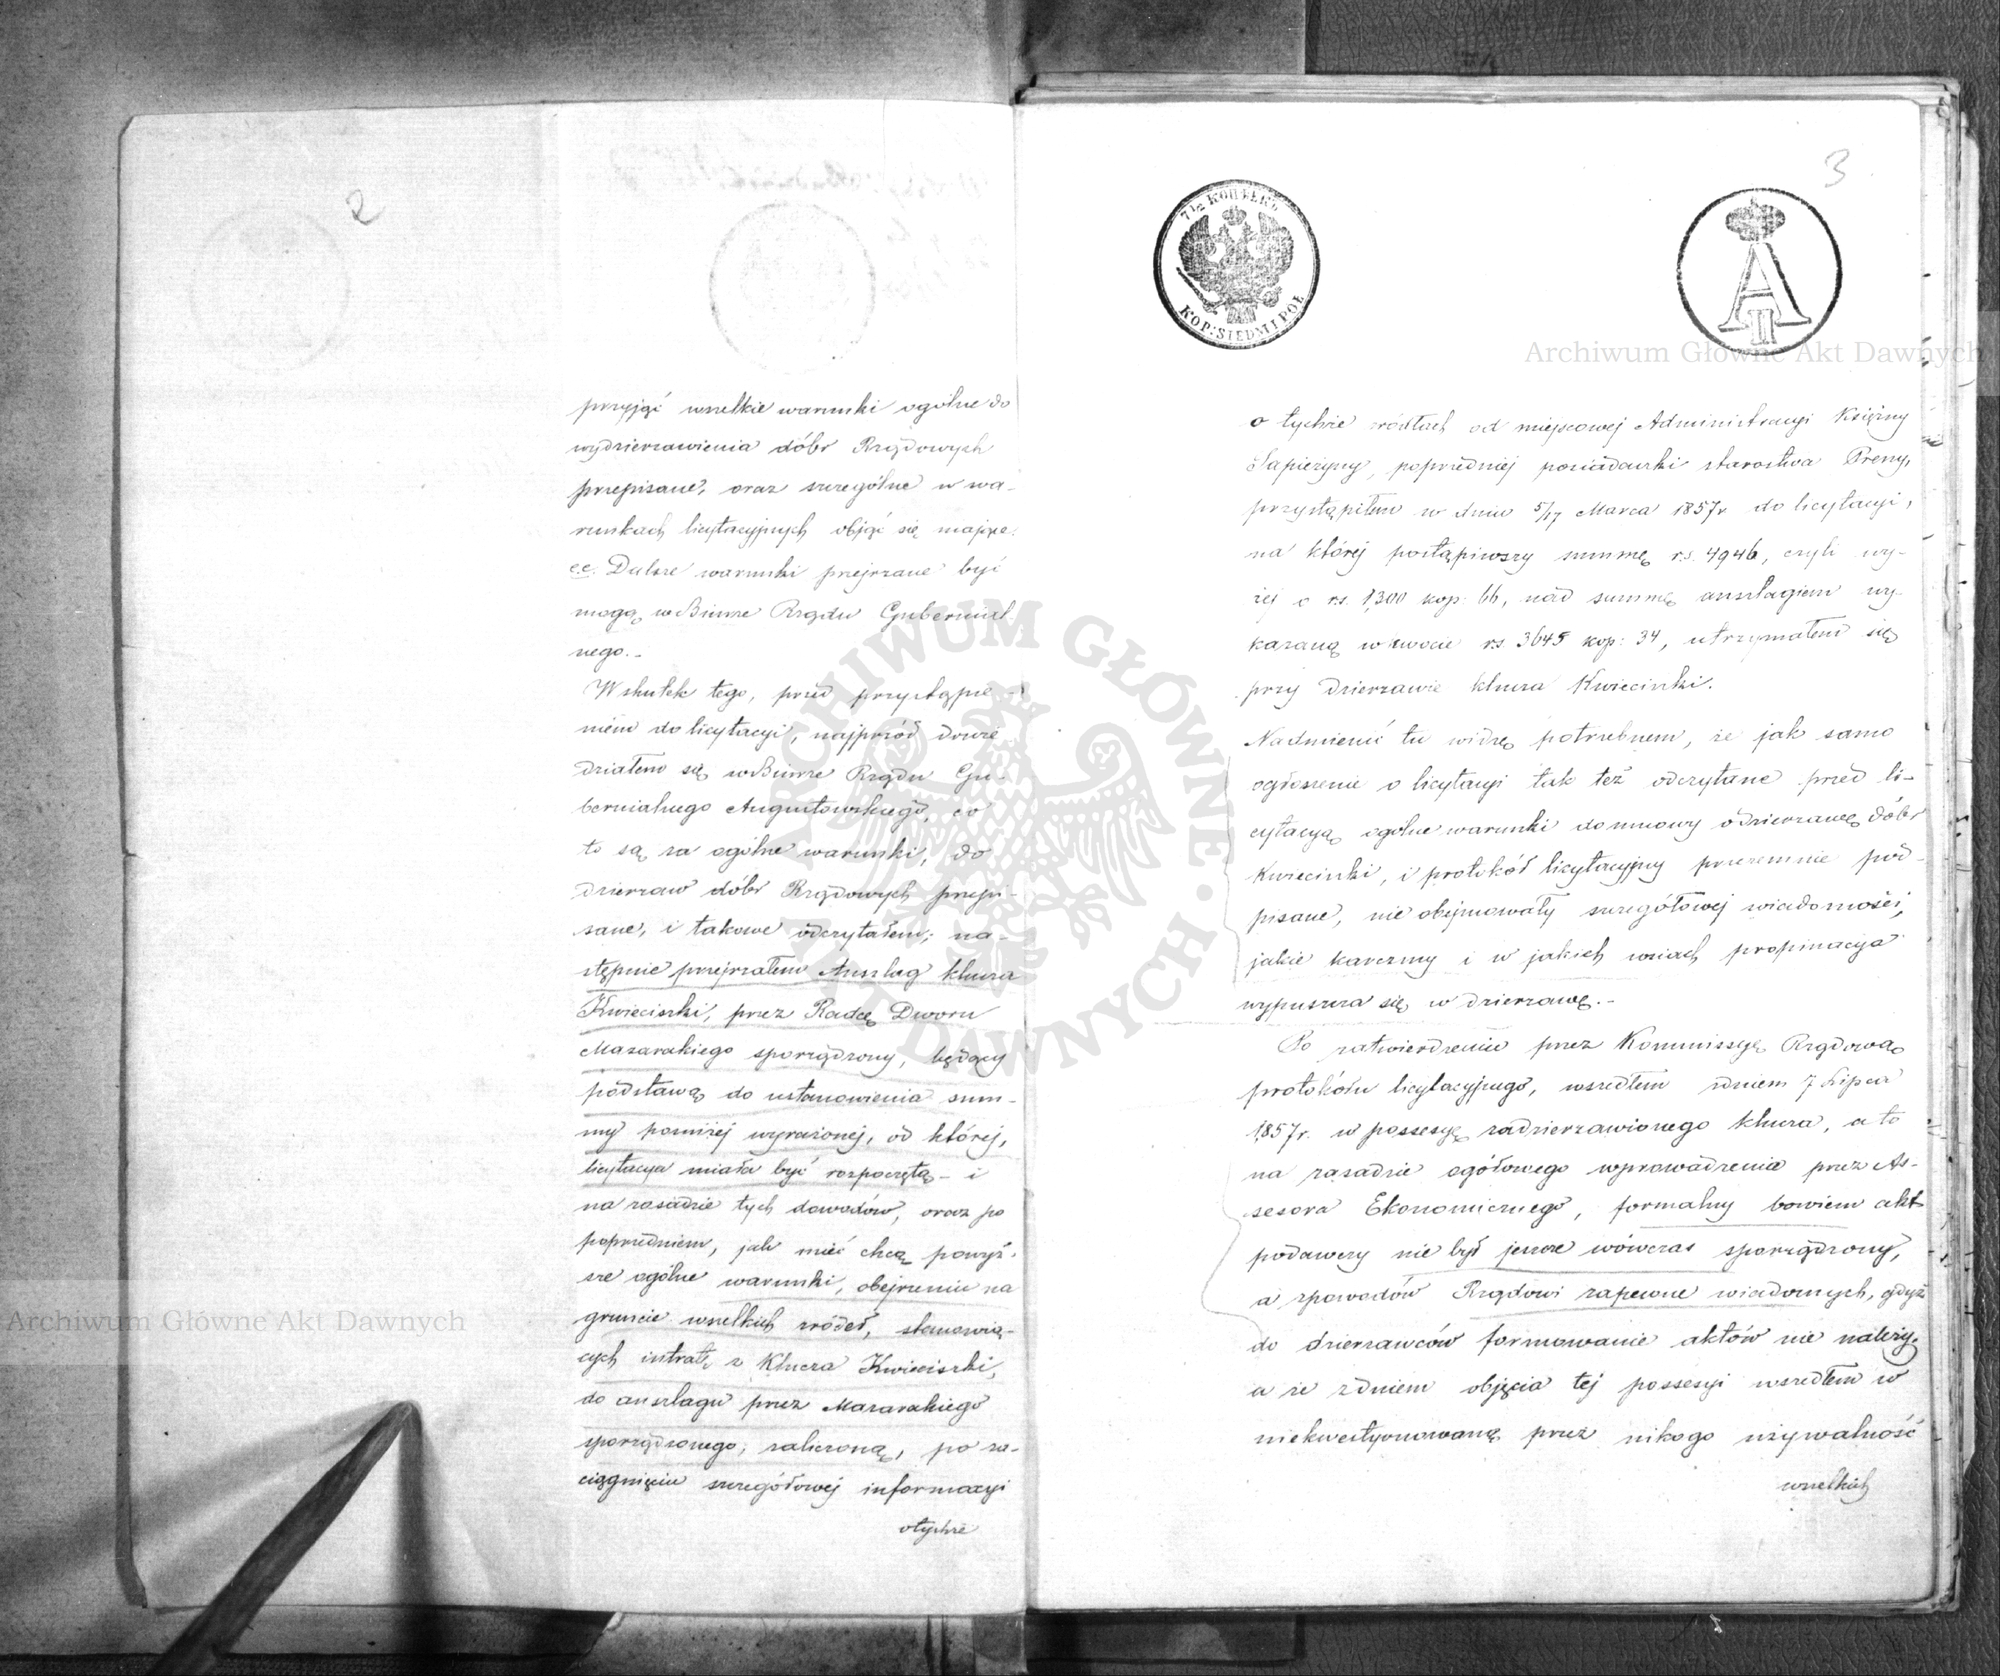 2
przyjąć wszelkie warunki ogólne do
wydzierżawienia dóbr Rządowych
przepisane, oraz szczególne w wa-
runkach licytacyjnych objąć się mające.
e.e. Dalsze warunki przejrzane być
mogą w Biurze Rządu Gubernial-
nego.-
Wskutek tego, przed przystąpie-
niem do licytacyi, najprzód dowie-
działem się w Biurze Rządu Gu-
bernialnego Augustowskiego, co
to są za ogólne warunki, do
dzierżaw dóbr Rządowych przepi-
sane, i takowe odczytałem; na-
stępnie przejrzałem Anszlag klucza
Kwieciszki, przez Radcę Dworu
Mazarakiego sporządzony, będący
podstawą do ustanowienia sum-
my poniżej wyrażonej, od której,
licytacya miała być rozpoczętą - i
na zasadzie tych dowodów, oraz po
poprzedniem, jak mieć chcą powyż-
sze ogólne warunki, obejrzeniu na
gruncie wszelkich źródeł, stanowią-
cych intratę z Klucza Kwieciszki,
do anszlagu przez Mazarakiego
sporządzonego, zaliczoną, po za-
ciągnięciu szczegółowej informacyi
otychże
3
7 1/2 КОПѢЕКЪ
KOP: SIEDM I PÓŁ
A II
o tychże źródłach od miejscowej Administracyi Księżny
Sapieżyny, poprzedniej posiadaczki starostwa Preny,
przystąpiłem w dniu 5/17 Marca 1857r do licytacyi,
na której postąpiwszy summę rs. 4946, czyli wy-
żej o rs. 1,300 kop: 66, nad summę anszlagiem wy-
kazaną w kwocie rs. 3645 kop: 34, utrzymałem się
przy dzierżawie klucza Kwieciszki.
Nadmienić tu widzę potrzebnem, że jak samo
ogłoszenie o licytacyi tak też odczytane przed li-
cytacyą ogólne warunki do umowy o dzierżawę dóbr
Kwieciszki, i protokół licytacyjny przezemnie pod-
pisane, nie obejmowały szczegółowej wiadomości,
jakie karczmy i w jakich wsiach propinacya
wypuszcza się w dzierżawę.-
Po zatwierdzeniu przez Kommissyę Rządową
protokółu licytacyjnego, wszedłem z dniem 7 Lipca
1857r. w possesyę zadzierżawionego klucza, a to
na zasadzie ogółowego wprowadzenia przez As-
sesora Ekonomicznego, formalny bowiem akt
podawczy nie był jeszcze wówczas sporządzony,
a z powodów Rządowi zapewne wiadomych, gdyż
do dzierżawców formowanie aktów nie należy,
a że z dniem objęcia tej possesyi wszedłem w
niekwestyonowaną przez nikogo używalność
wszelkich
Archiwum Główne Akt Dawnych
Archiwum Główne Akt Dawnych
ARCHIWUM GŁÓWNE · AKT DAWNYCH ·